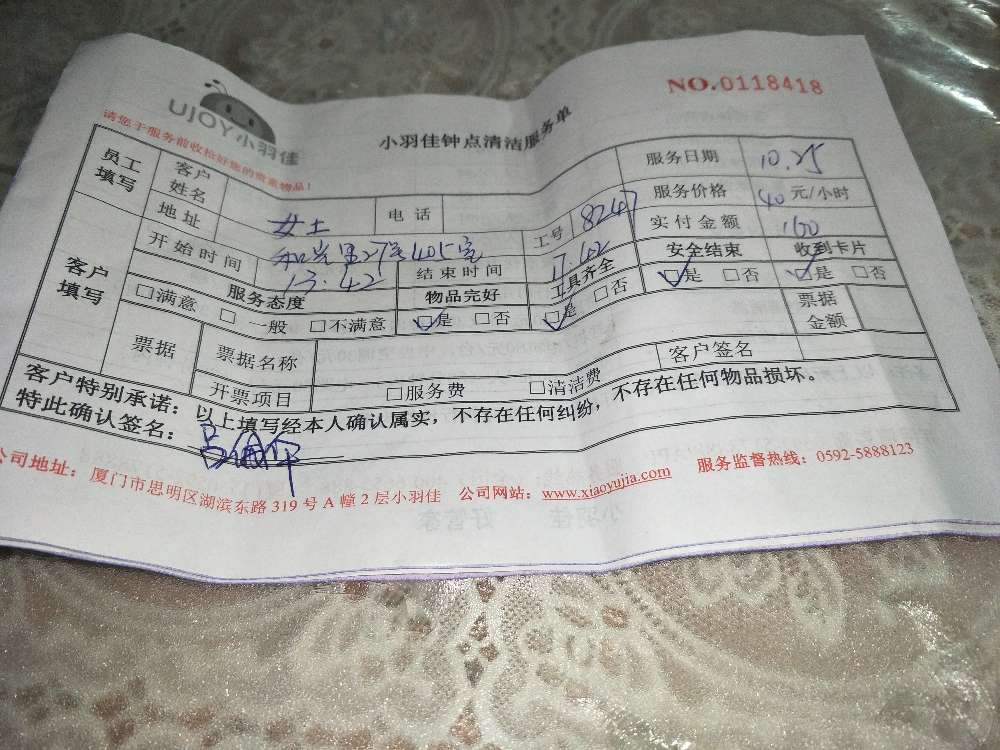 NO.0118418
UJOY小羽佳
小羽佳钟点清洁服务单
请您于服务前收检好您的贵重物品！
员工填写 客户姓名 女士 电话 工号 8247 服务日期 10.25
地址 405室 服务价格 40元/小时
开始时间 13:42 结束时间 17:42 实付金额 160
客户填写 服务态度 物品完好 工具齐全 安全结束 收到卡片
□满意 □一般 □不满意 □是 □否 □是 □否 □是 □否 □是 □否
票据 票据名称 票据金额
开票项目 □服务费 □清洁费 客户签名
客户特别承诺：以上填写经本人确认属实，不存在任何纠纷，不存在任何物品损坏。
特此确认签名：
公司地址：厦门市思明区湖滨东路319号A幢2层小羽佳 公司网站：www.xiaoyujia.com 服务监督热线：0592-5888123